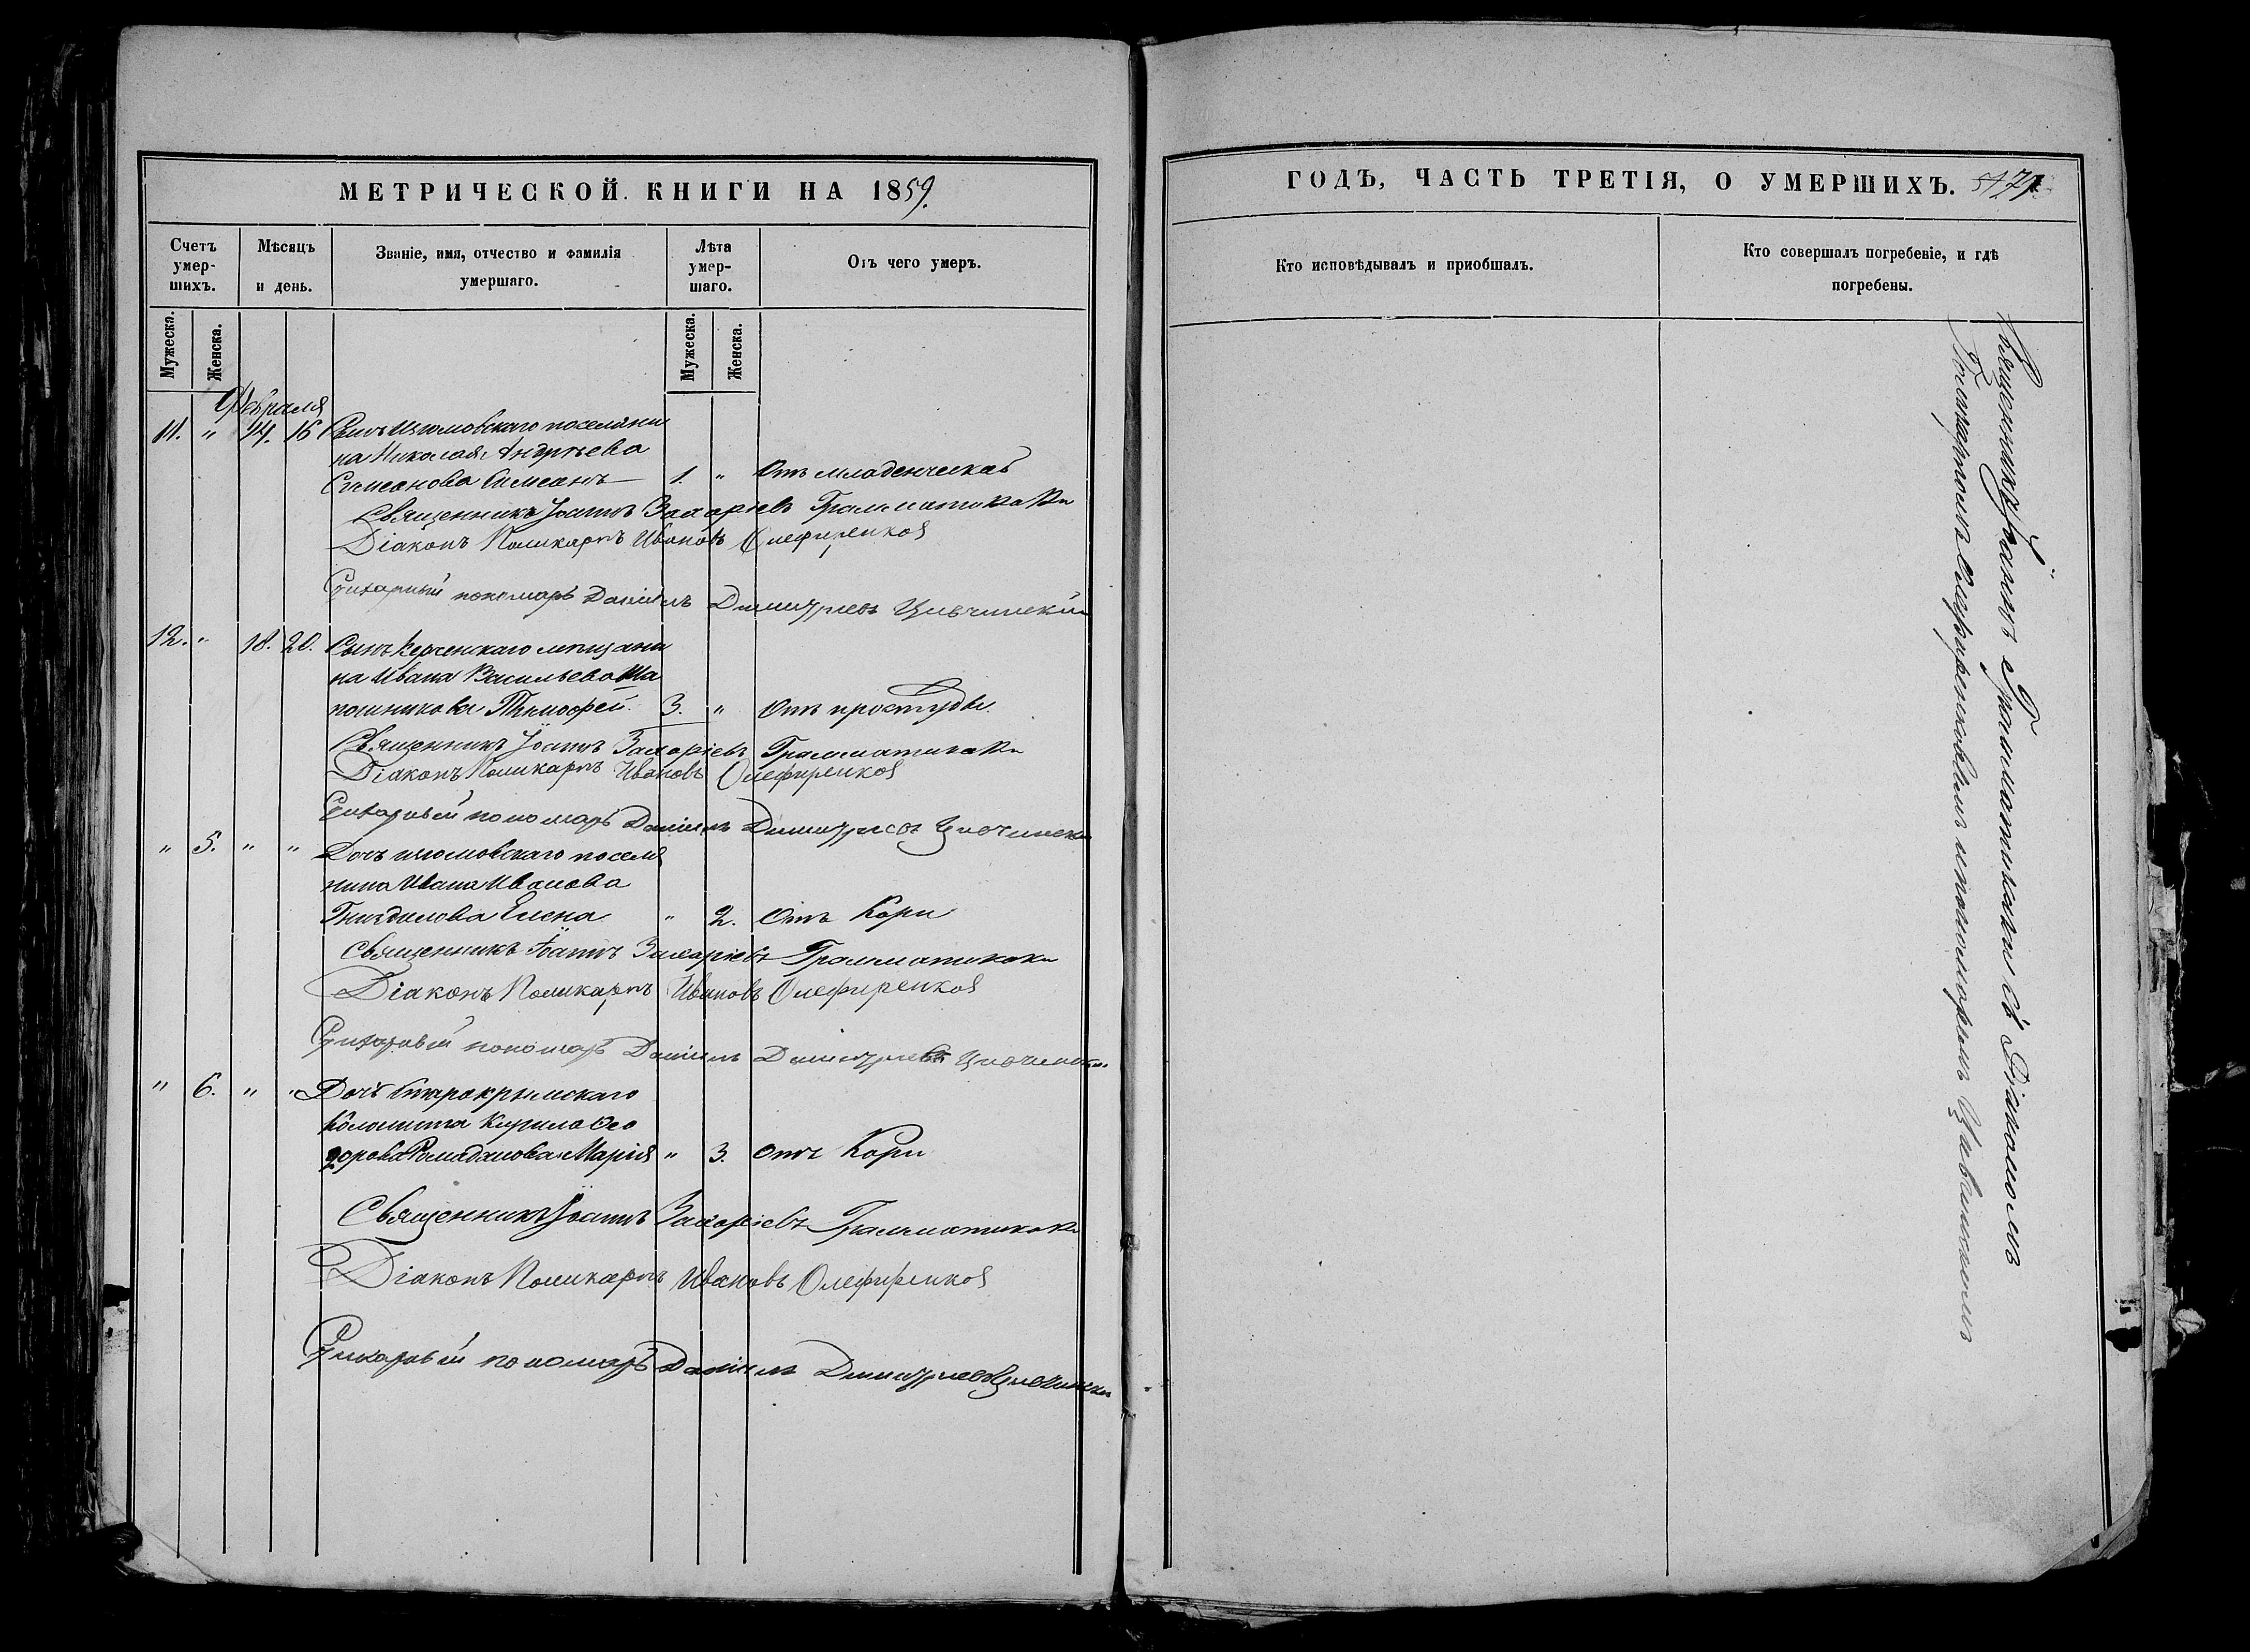 МЕТРИЧЕСКОЙ КНИГИ НА 1859.
Счетъ умер-шихъ.
Мѣсяцъ и день.
Званіе, имя, отчество и фамилія умершаго.
Лѣта умер-шаго.
Отъ чего умеръ.
Мужеска. Женска.
Мужеска. Женска.
Февраля
11. " 14. 16 Сынъ Изюмовскаго поселяни
на Николая Андреева
Симеонова Симеонъ 1. " Отъ младенческой
Священникъ Іоаннъ Захаріевъ Грамматикаки
Діаконъ Поликарпъ Ивановъ Олефиренковъ
Стихарный пономарь Даніилъ Димитріевъ Цивчинскій
12. " 18. 20. Сынъ Керченскаго мѣщани
на Ивана Васильева Ша
пошникова Тимофей. 3. " Отъ простуды.
Священникъ Іоаннъ Захаріевъ Грамматикаки
Діаконъ Поликарпъ Ивановъ Олефиренковъ
Стихарный пономарь Даніилъ Димитріевъ Цивчинскій
" 5. " " Дочь изюмовскаго поселя
нина Ивана Иванова
Гнездилова Елена " 2. Отъ Кори
Священникъ Іоаннъ Захаріевъ Грамматикаки
Діаконъ Поликарпъ Ивановъ Олефиренковъ
Стихарный пономарь Даніилъ Димитріевъ Цивчинскій
" 6. " " Дочь Старокрымскаго
Колониста Кирила Ѳео
дорова Рамаданова Марія " 3. отъ Кори
Священникъ Іоаннъ Захаріевъ Грамматикаки
Діаконъ Поликарпъ Ивановъ Олефиренковъ
Стихарный пономарь Даніилъ Димитріевъ Цивчинскій
ГОДЪ, ЧАСТЬ ТРЕТІЯ, О УМЕРШИХЪ.
Кто исповѣдывалъ и пріобщалъ.
Кто совершалъ погребеніе, и гдѣ погребены.
Священникъ Іоаннъ Грамматикаки съ Діакономъ
Поликарпомъ Олефиренковымъ и пономаремъ Цивчинскимъ